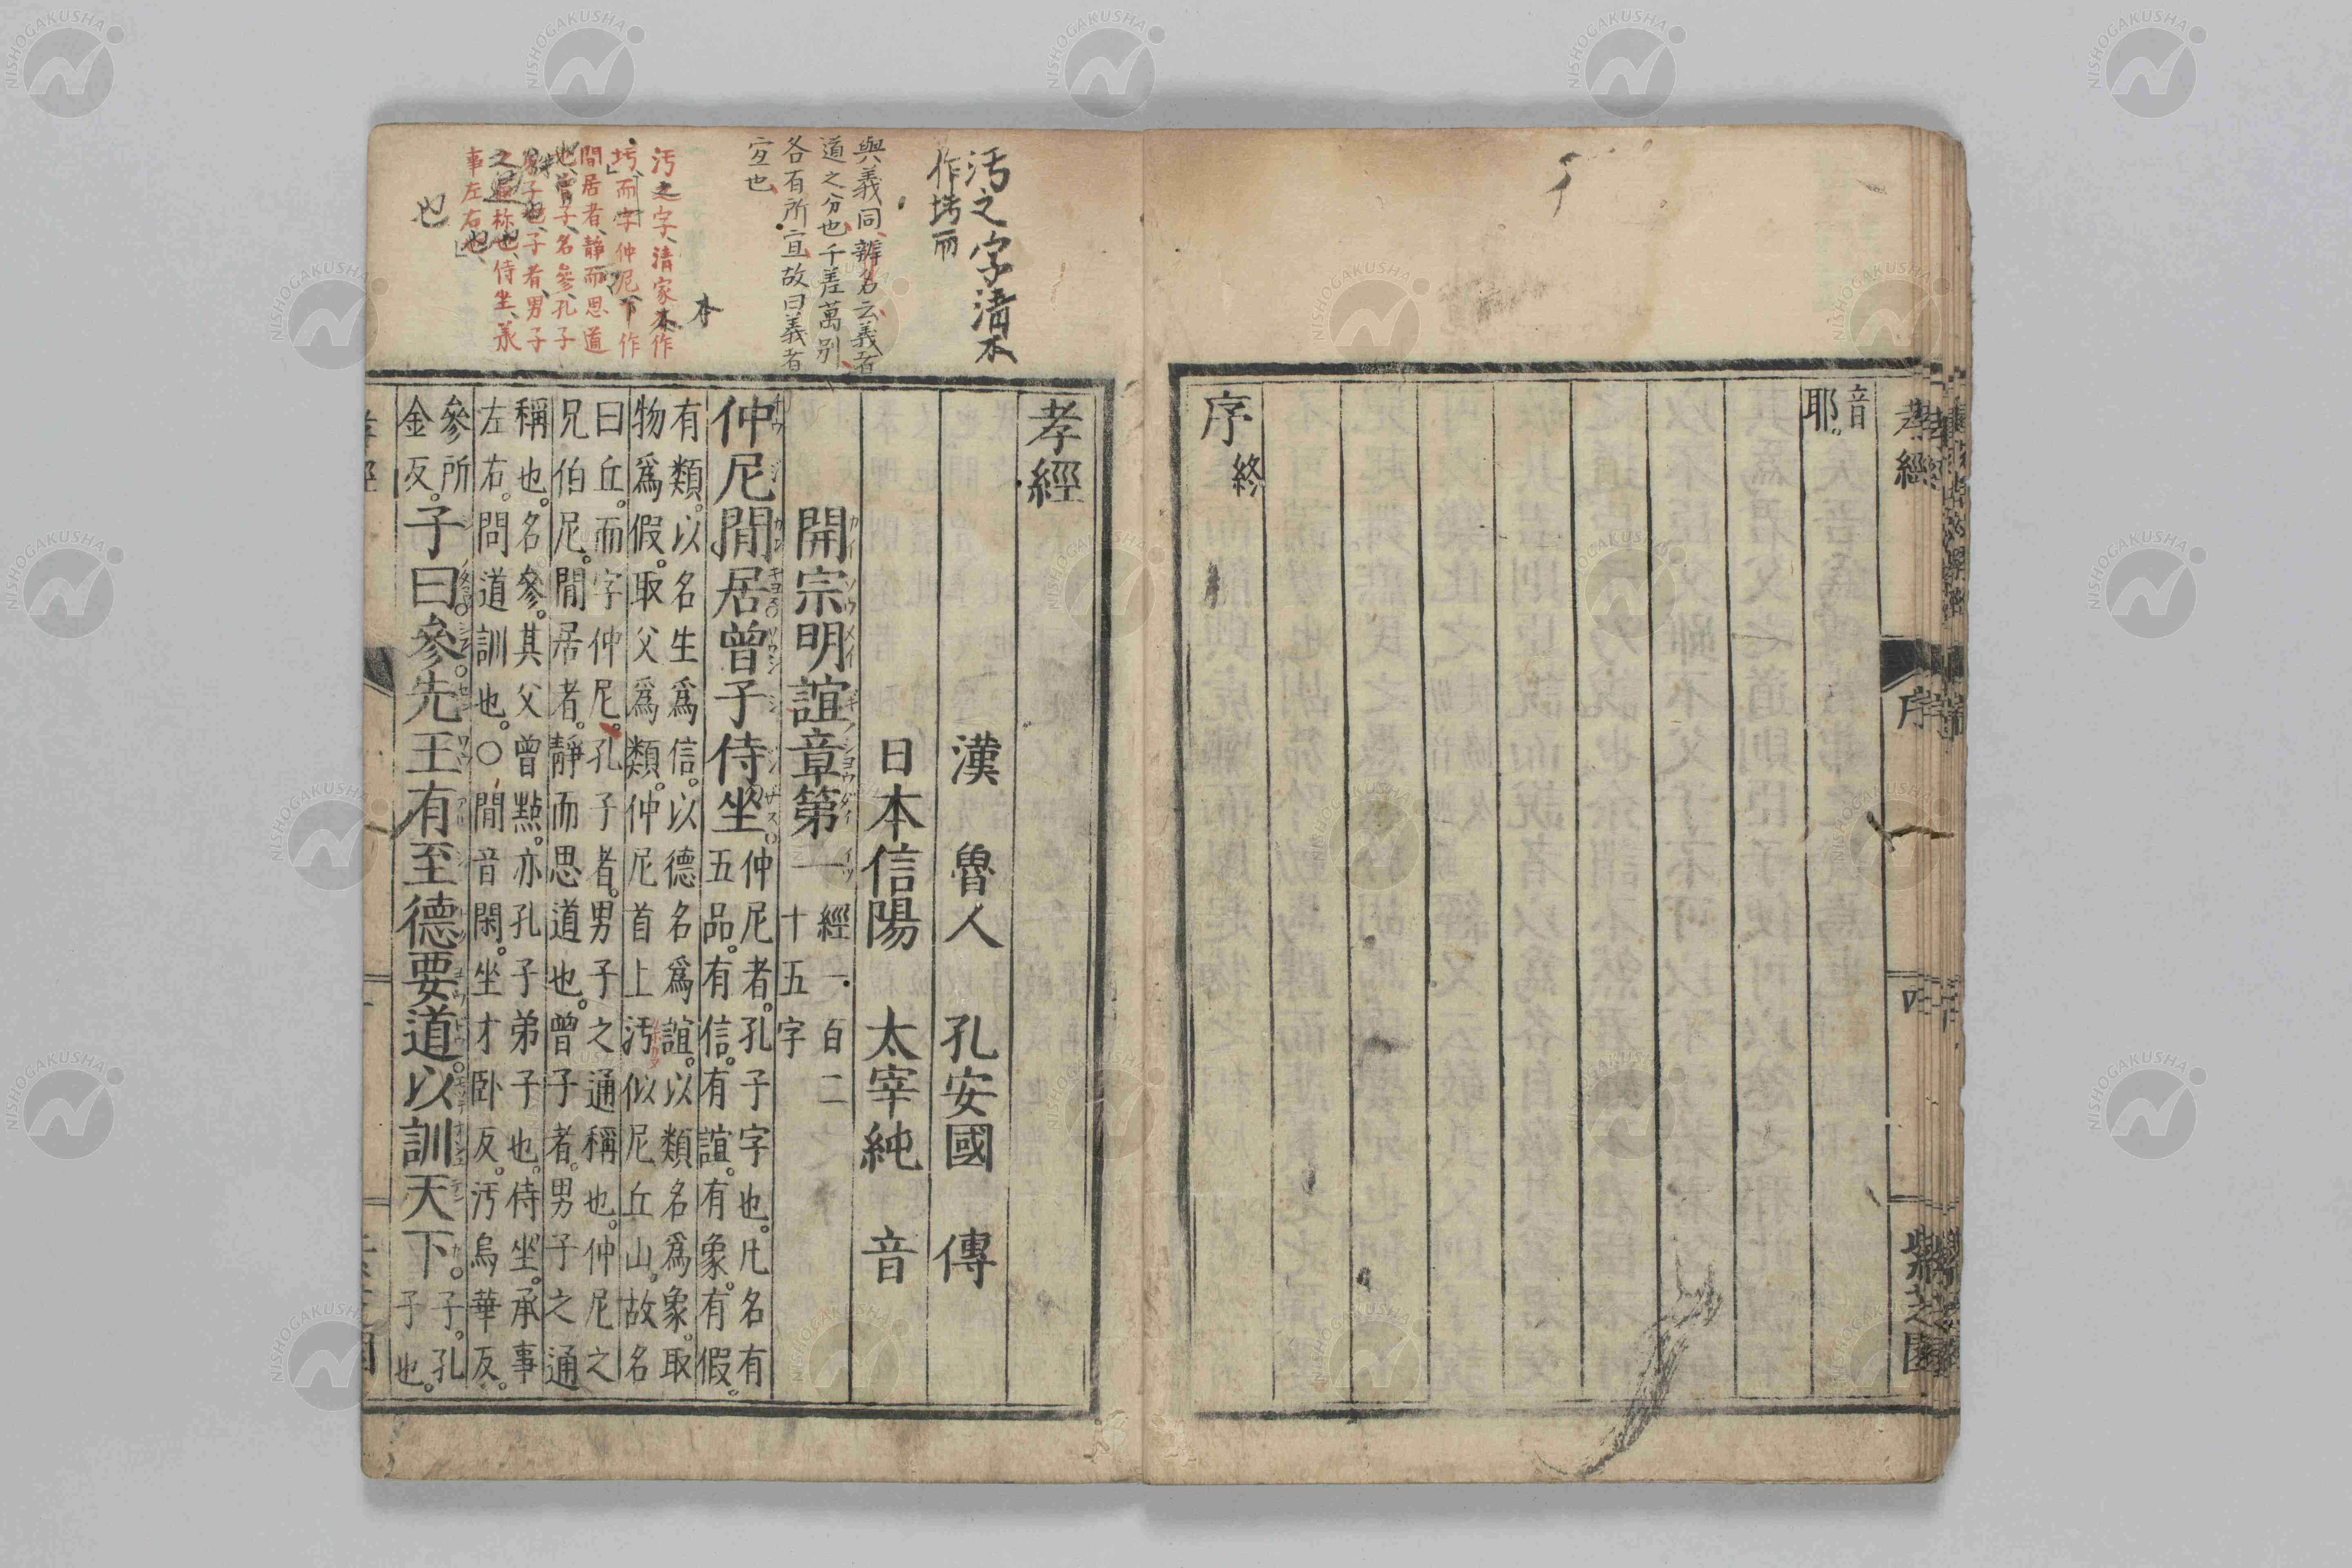 音
耶。
序終
汚之字清本
作圬而
與義同、辨名云義者
道之分也、千差萬別
各有所宜故曰義者
宜也
本
汚之字、清家本作
圬、而字仲尼下作
間居者、靜而思道
也、曾子、名參、孔子
子者男子
之通称也、侍坐、承
事左右也、
也
孝經
漢 魯人 孔安國 傳
日本信陽 太宰純 音
開宗明誼章第一 經一百二
十五字
仲尼閒居。曾子侍坐。仲尼者。孔子字也。凡名有
五品。有信。有誼。有象。有假。
有類。以名生爲信。以德名爲誼。以類名爲象。取
物爲假。取父爲類。仲尼首上汚似尼丘山。故名
曰丘。而字仲尼。孔子者。男子之通稱也。仲尼之
兄伯尼。閒居者。靜而思道也。曾子者。男子之通
稱也。名參。其父曾點。亦孔子弟子也。侍坐。承事
左右。問道訓也。〇間音閑。坐才臥反。汚烏華反。
參所
金反。子曰。參。先王有至德要道。以訓天下。子。孔
子也。
孝經
序
四
紫芝園